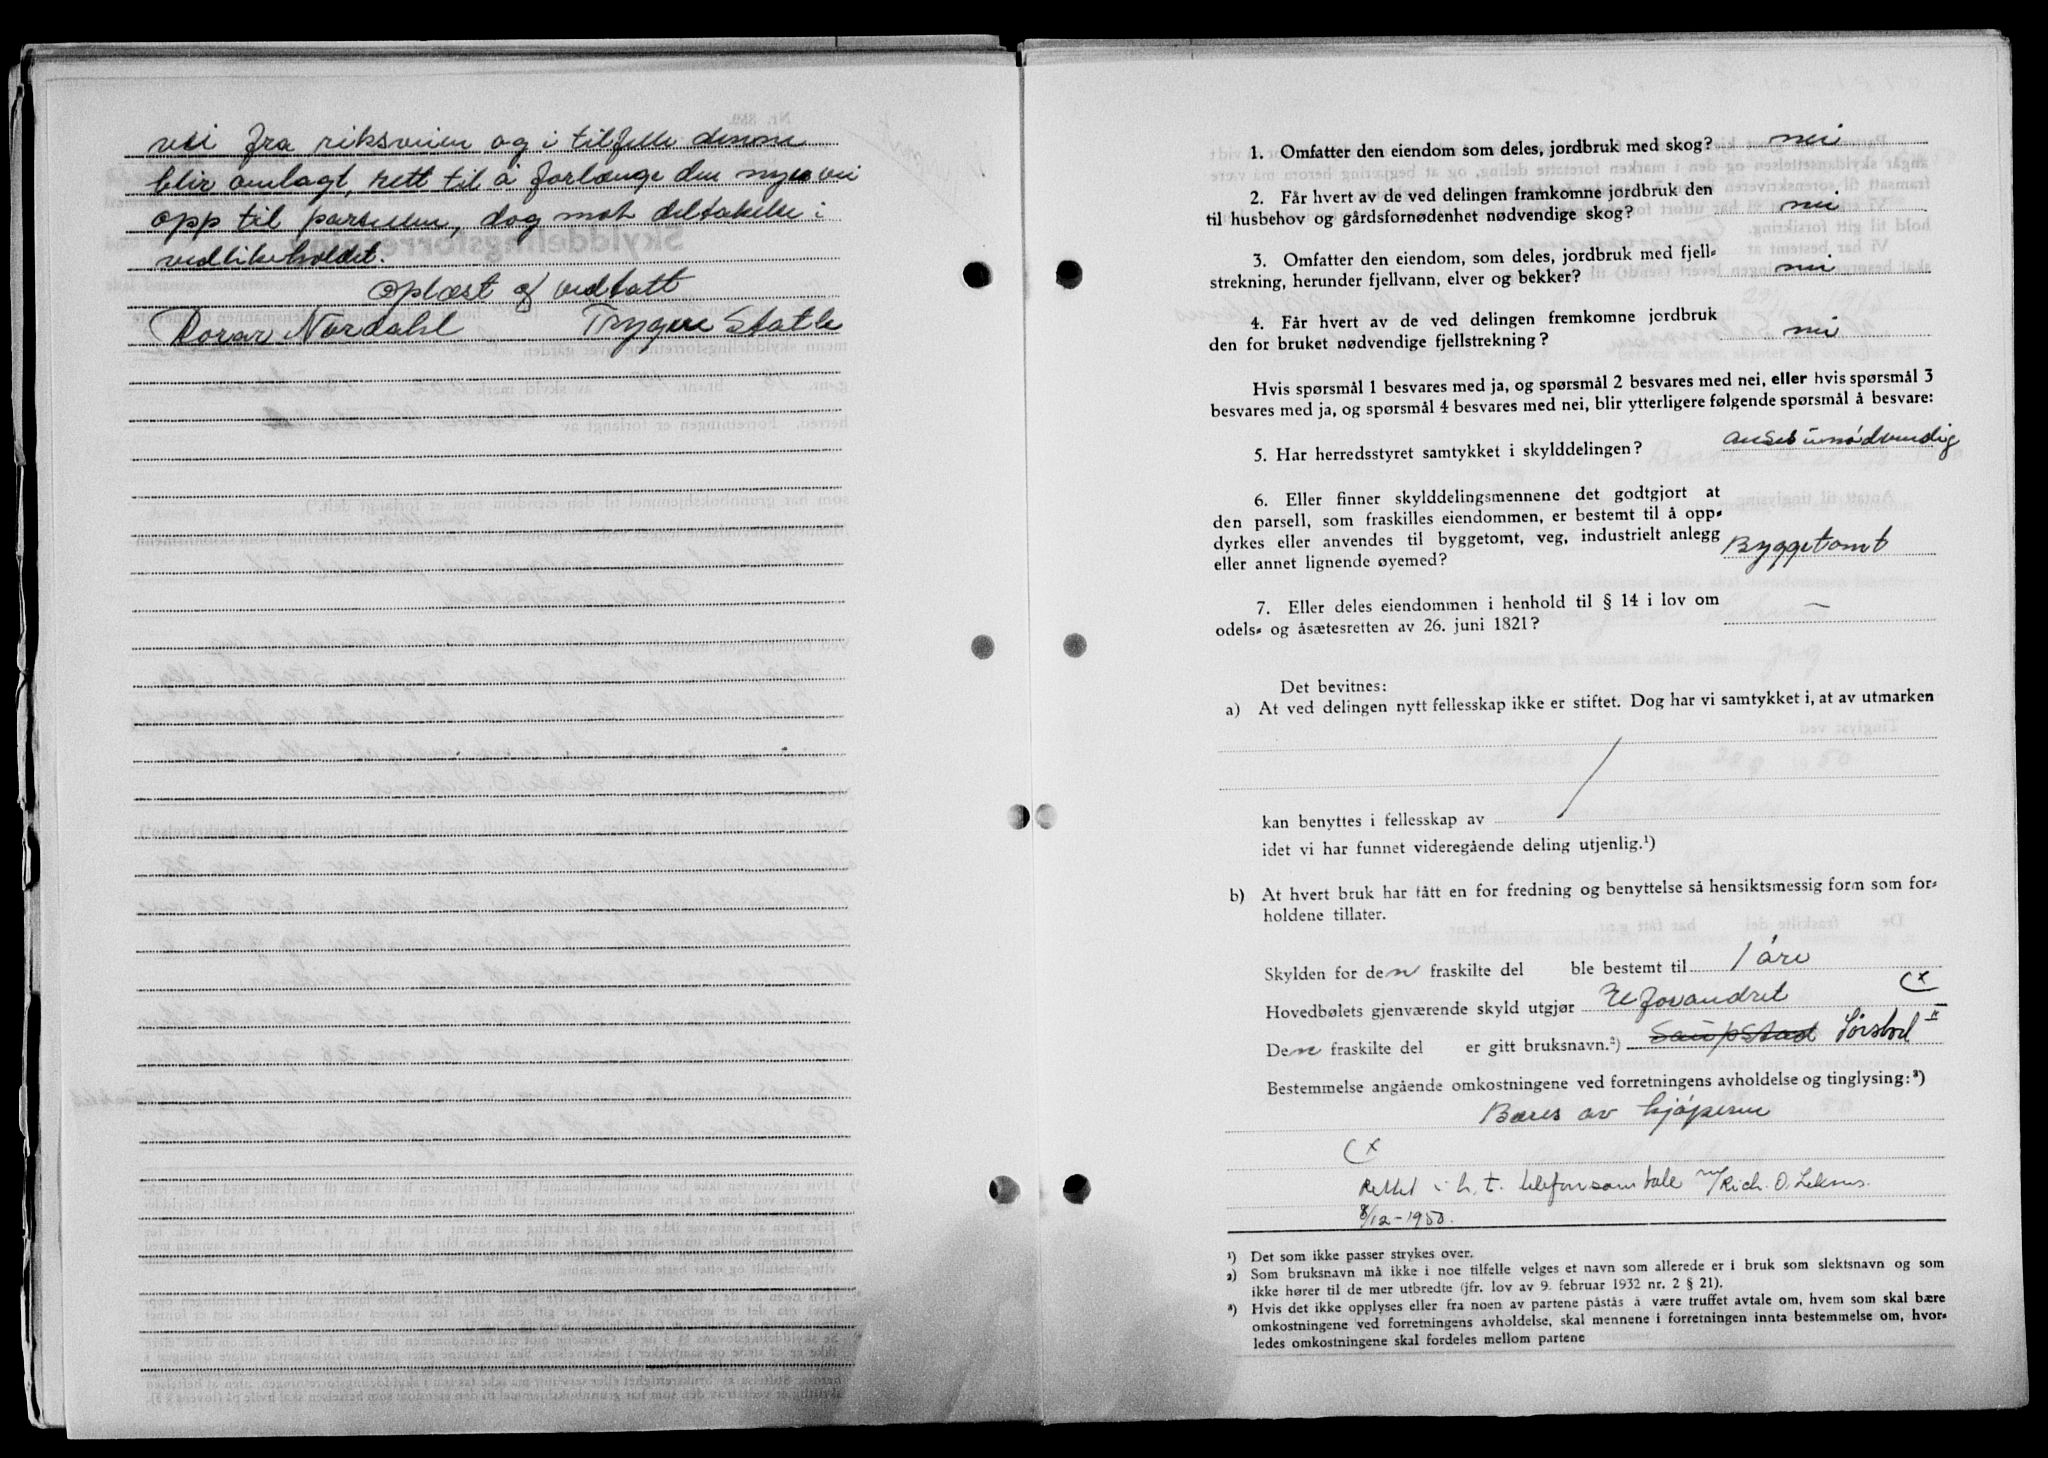 vei fra riksveien og i tilfelle denne
blir omlagt, rett til å forlænge den nye vei
opp til parsellen, dog mot deltakelse i
vedlikeholdet.
Oplæst og vedtatt
Roar Nordahl Trygve Statle
1. Omfatter den eiendom som deles, jordbruk med skog? nei
2. Får hvert av de ved delingen framkomne jordbruk den
til husbehov og gårdsfornødenhet nødvendige skog? nei
3. Omfatter den eiendom, som deles, jordbruk med fjell-
strekning, herunder fjellvann, elver og bekker? nei
4. Får hvert av de ved delingen fremkomne jordbruk
den for bruket nødvendige fjellstrekning? nei
Hvis spørsmål 1 besvares med ja, og spørsmål 2 besvares med nei, eller hvis spørsmål 3
besvares med ja, og spørsmål 4 besvares med nei, blir ytterligere følgende spørsmål å besvare:
5. Har herredsstyret samtykket i skylddelingen? anses unødvendig
6. Eller finner skylddelingsmennene det godtgjort at
den parsell, som fraskilles eiendommen, er bestemt til å opp-
dyrkes eller anvendes til byggetomt, veg, industrielt anlegg
eller annet lignende øyemed? Byggetomt
7. Eller deles eiendommen i henhold til § 14 i lov om
odels- og åsætesretten av 26. juni 1821? —
Det bevitnes:
a) At ved delingen nytt fellesskap ikke er stiftet. Dog har vi samtykket i, at av utmarken
kan benyttes i fellesskap av /
idet vi har funnet videregående deling utjenlig.¹)
b) At hvert bruk har fått en for fredning og benyttelse så hensiktsmessig form som for-
holdene tillater.
Skylden for den fraskilte del ble bestemt til 1 øre
Hovedbølets gjenværende skyld utgjør Uforandret (x
Den fraskilte del er gitt bruksnavn.²) Saupstad Sørstad II
Bestemmelse angående omkostningene ved forretningens avholdelse og tinglysing:³)
Bæres av kjøperne
(x
Rettet i h. t. telefonsamtale m/Rich. O. Leknes.
8/12-1950.
¹) Det som ikke passer strykes over.
²) Som bruksnavn må ikke i noe tilfelle velges et navn som allerede er i bruk som slektsnavn og som
ikke hører til de mer utbredte (jfr. lov av 9. februar 1932 nr. 2 § 21).
³) Hvis det ikke opplyses eller fra noen av partene påstås å være truffet avtale om, hvem som skal bære
omkostningene ved forretningens avholdelse, skal mennene i forretningen innta bestemmelse om, hvor-
ledes omkostningene skal fordeles mellom partene